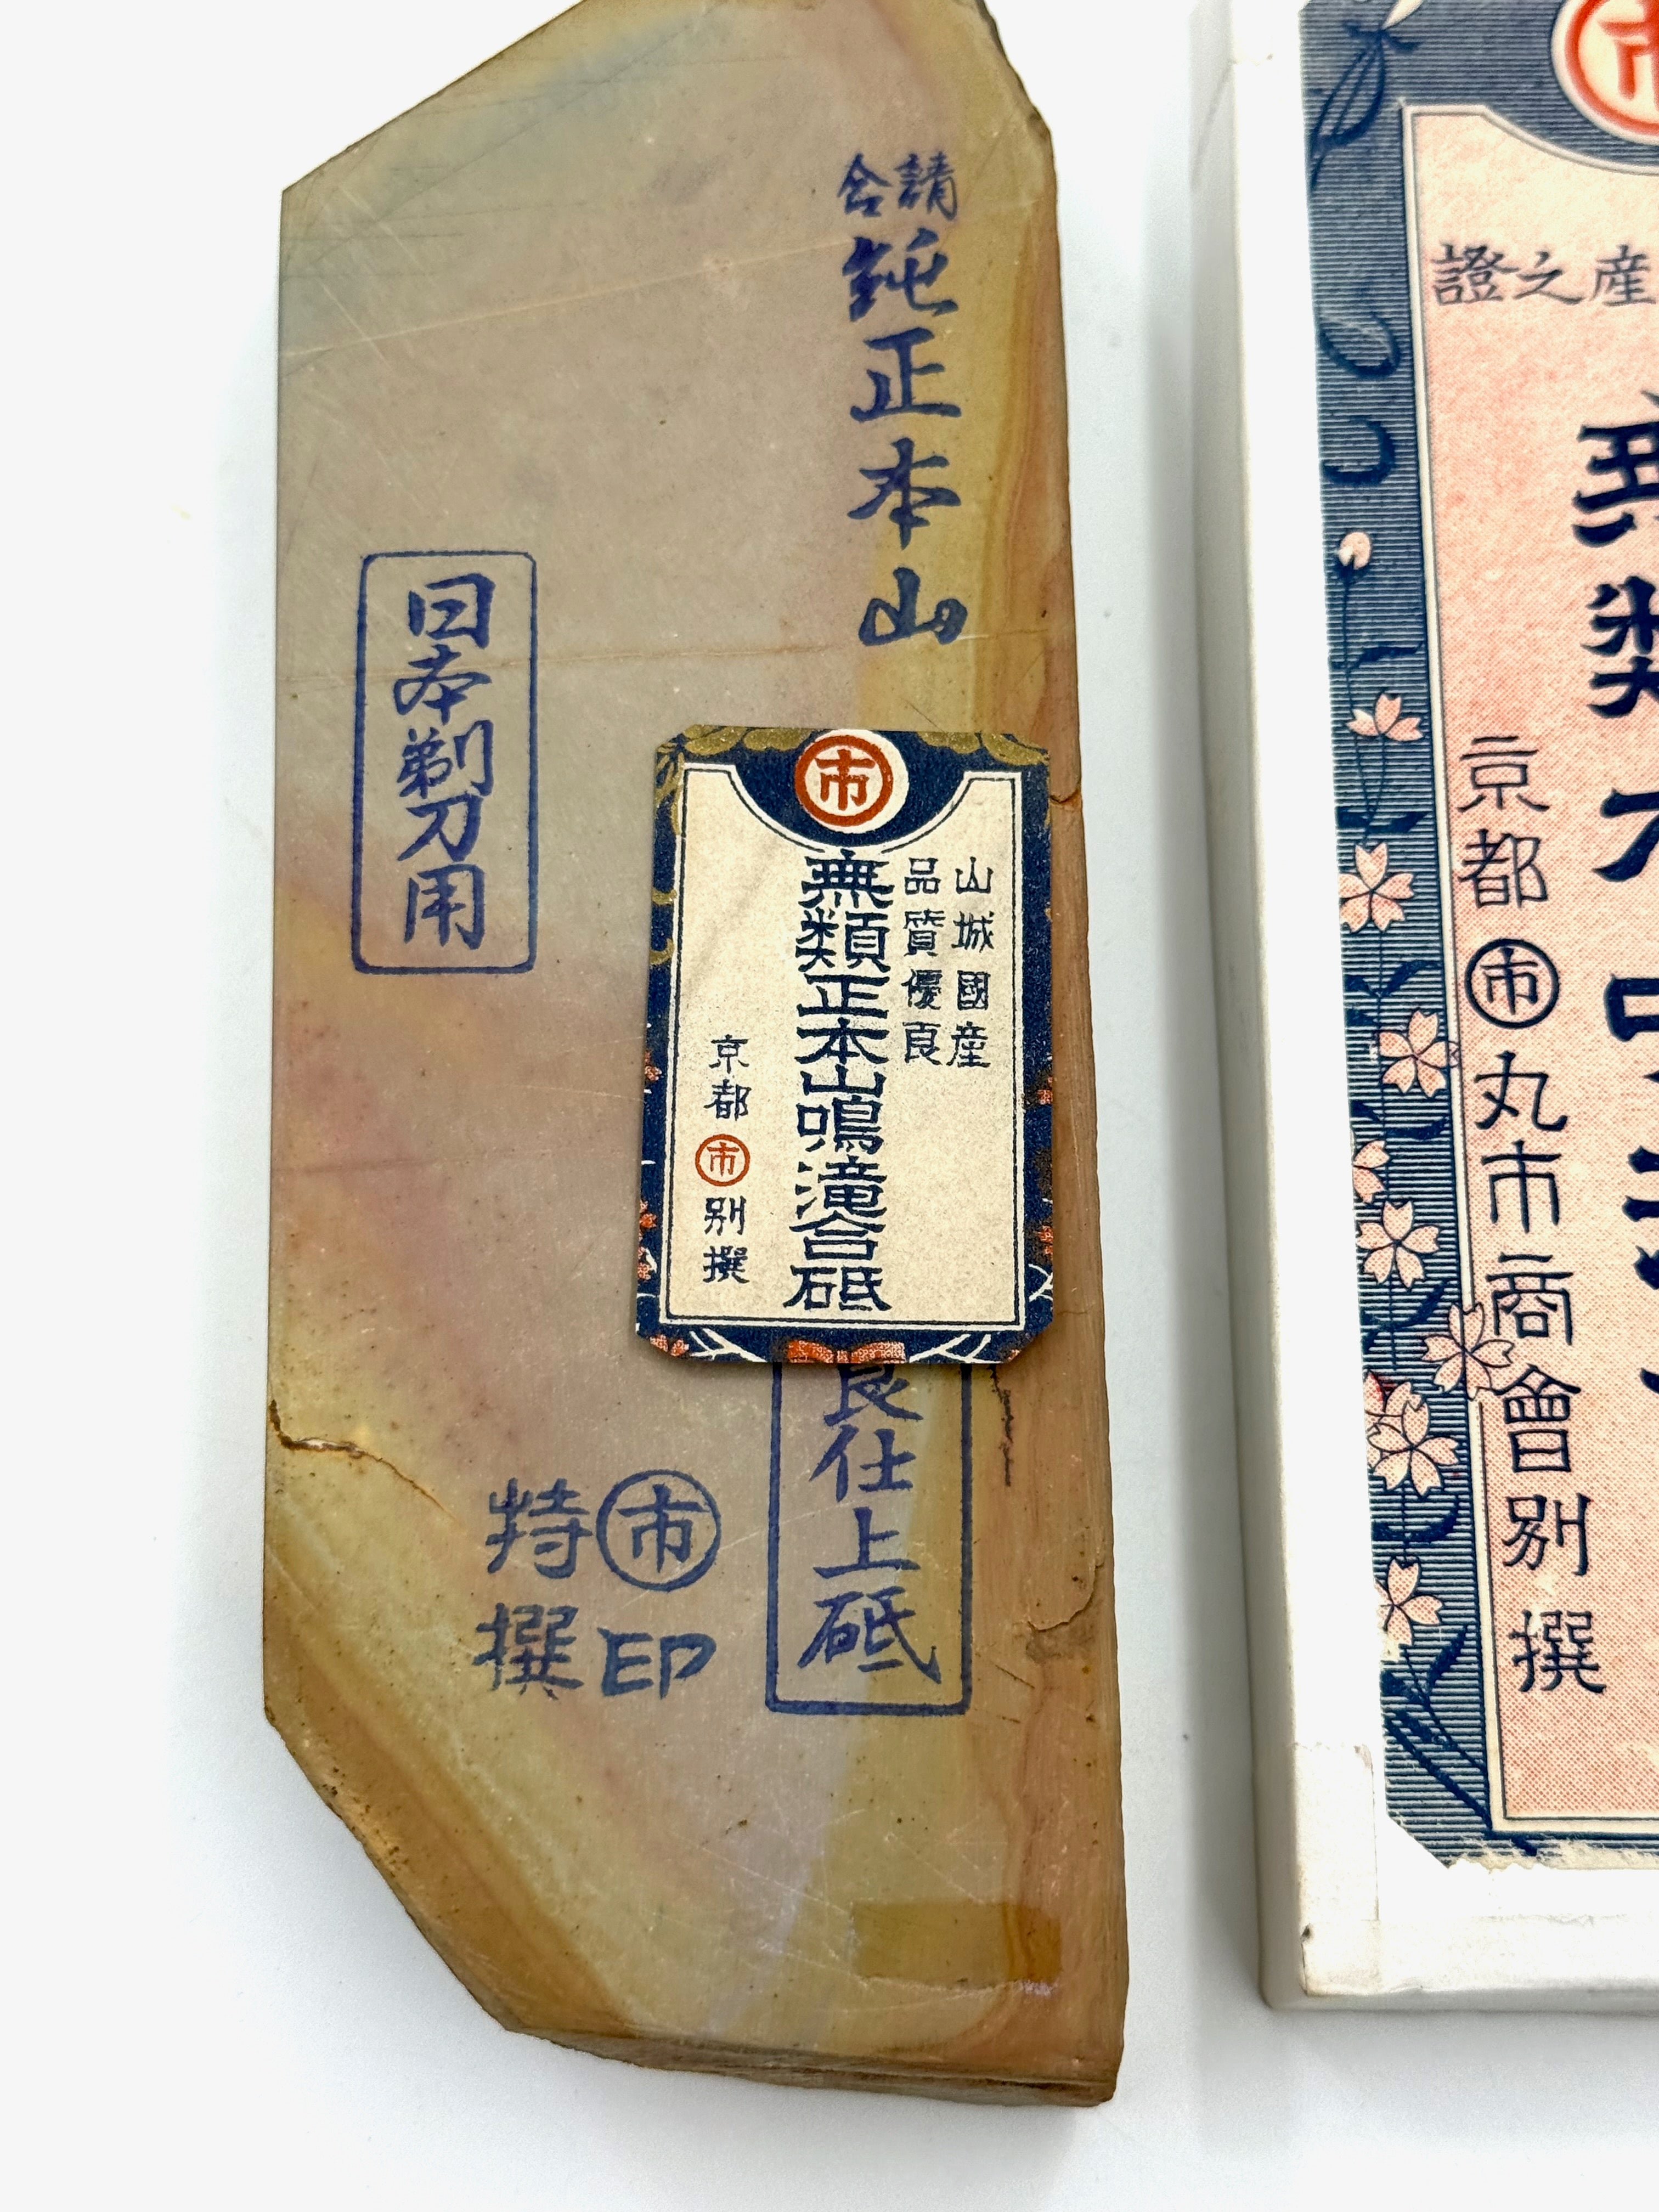 請合
純正本山
日本剃刀用
良仕上砥
市印
特撰
市
山城國産
品質優良
無類正本山鳴滝合砥
京都市別撰
産之證
無類
京都市丸市商會別撰